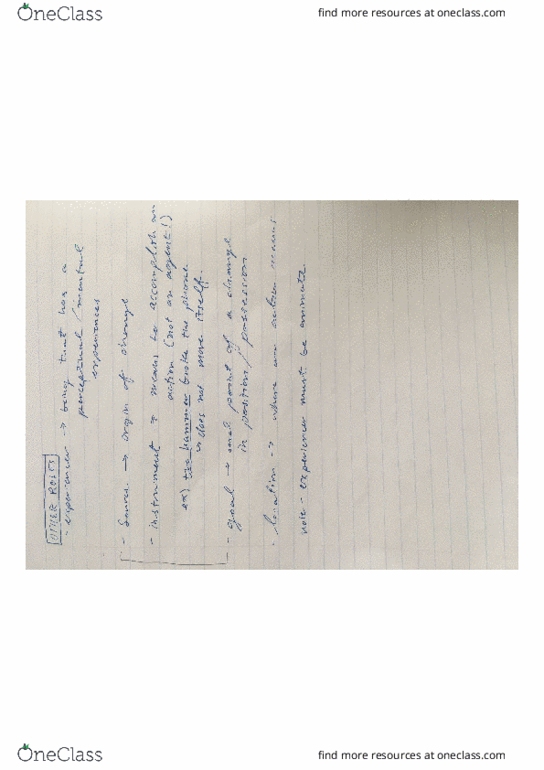 OneClass
find more resources at oneclass.com
OTHER ROLES
- experiencer → being that has a
perceptual/mental
experiences
- Source → origin of change
- instrument → means to accomplish an
action (not an agent!)
ex) the hammer broke the phone.
↳ does not move itself.
- goal → end point of a change
in position/possession
- location → where an action occurs
note - experiencer must be animate.
OneClass
find more resources at oneclass.com